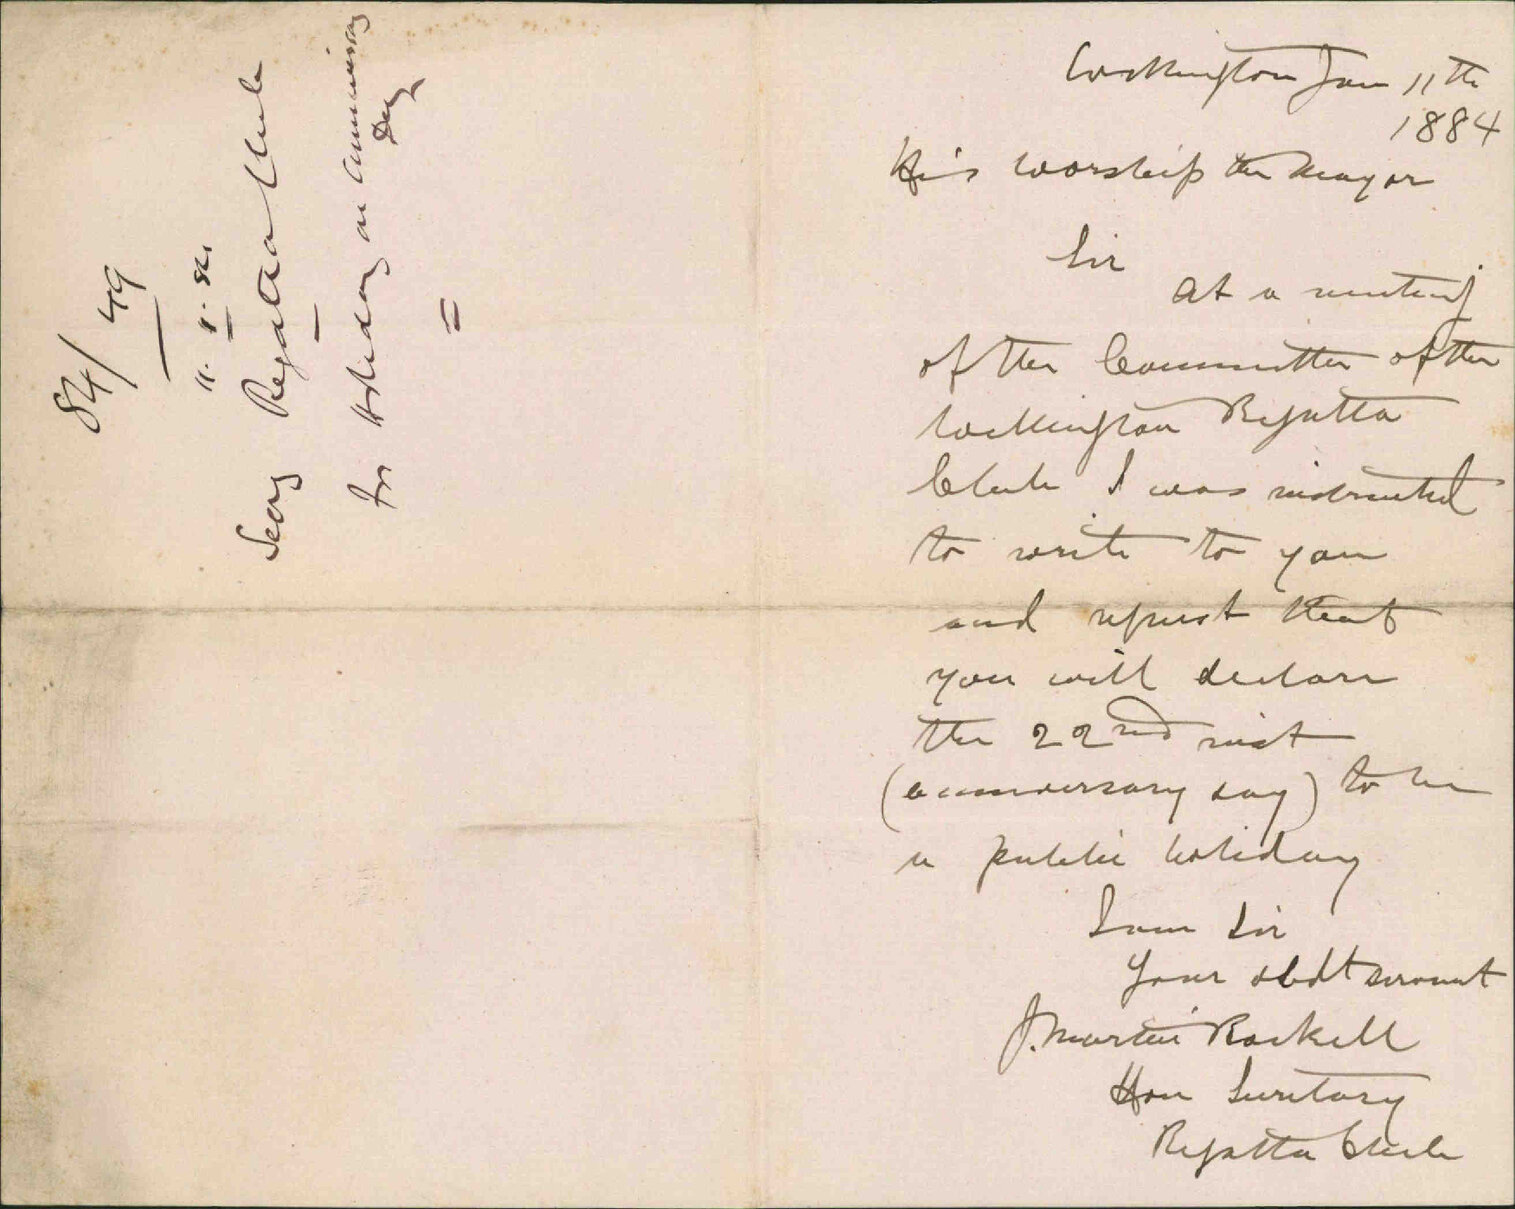 84/49
11.1.84
Secy Regatta Club
for Holiday on Anniversary
Day
Wellington Jan 11th
1884
His Worship the Mayor
Sir
At a meeting
of the Committee of the
Wellington Regatta
Club I was instructed
to write to you
and request that
you will declare
the 22nd inst
(anniversary day) to be
a public holiday
I am Sir
Your obdt servant
J. Martin
Hon Secretary
Regatta Club